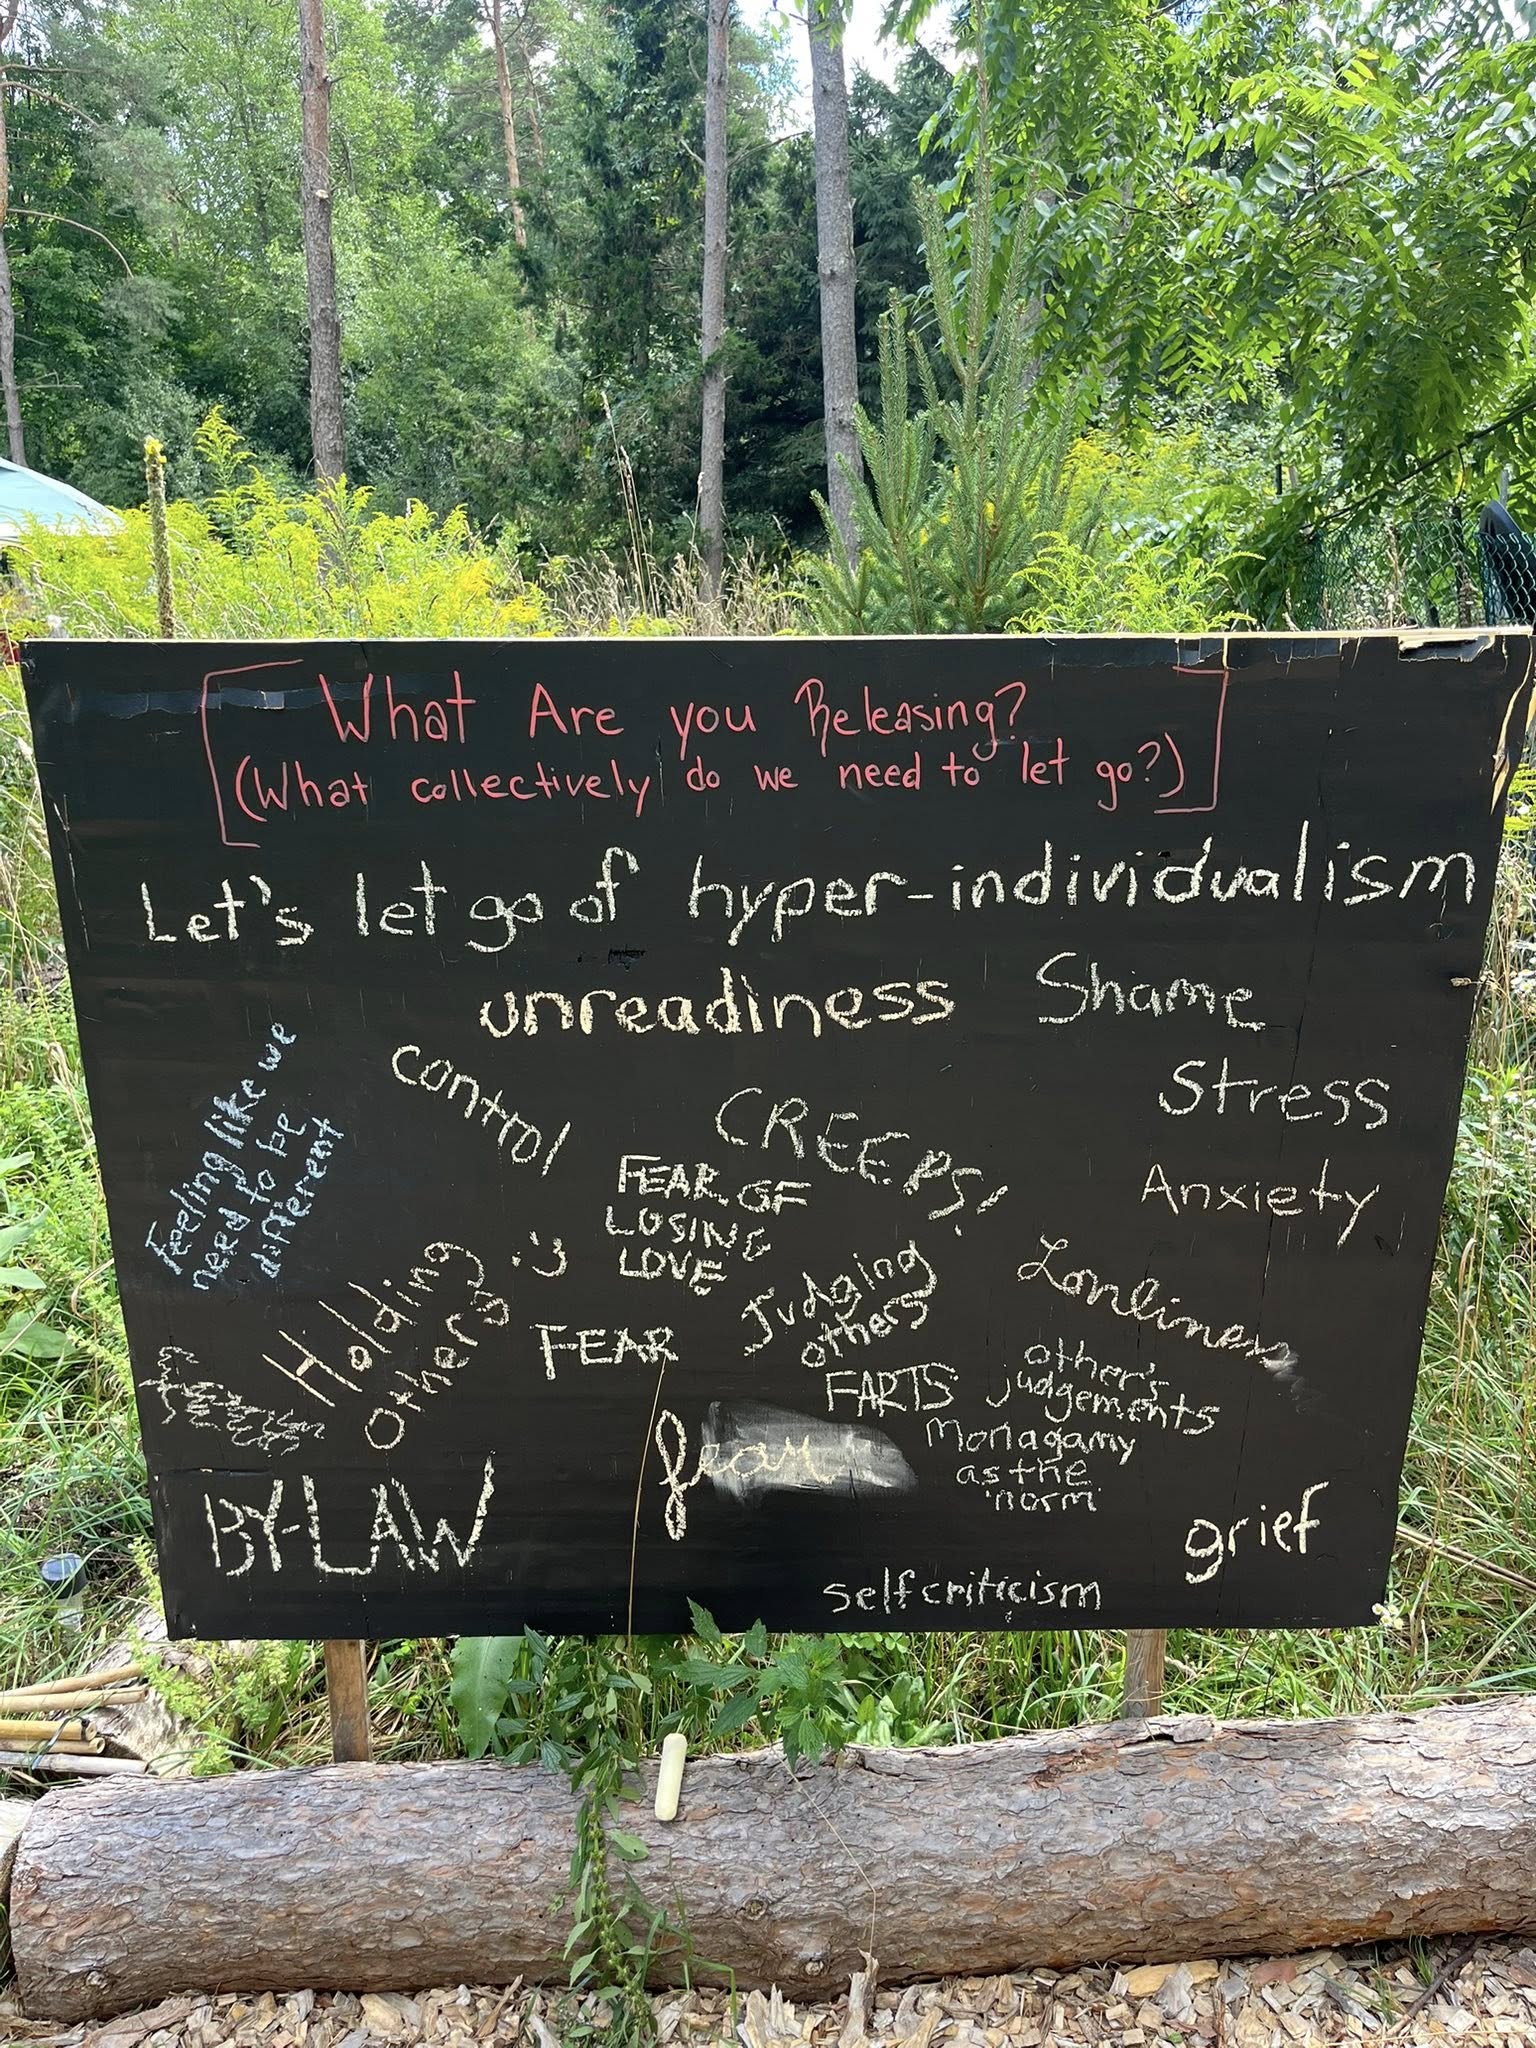 What Are you Releasing?
(What collectively do we need to let go?)
Let's let go of hyper-individualism
unreadiness
Shame
Feeling like we
need to be
different
control
CREEPS!
Stress
FEAR OF
LOSING
LOVE
Anxiety
Holding
Others
:)
Judging
others
Lonliness
FEAR
FARTS
other's
judgements
fear
Monagamy
as the
norm
BY-LAW
grief
self criticism